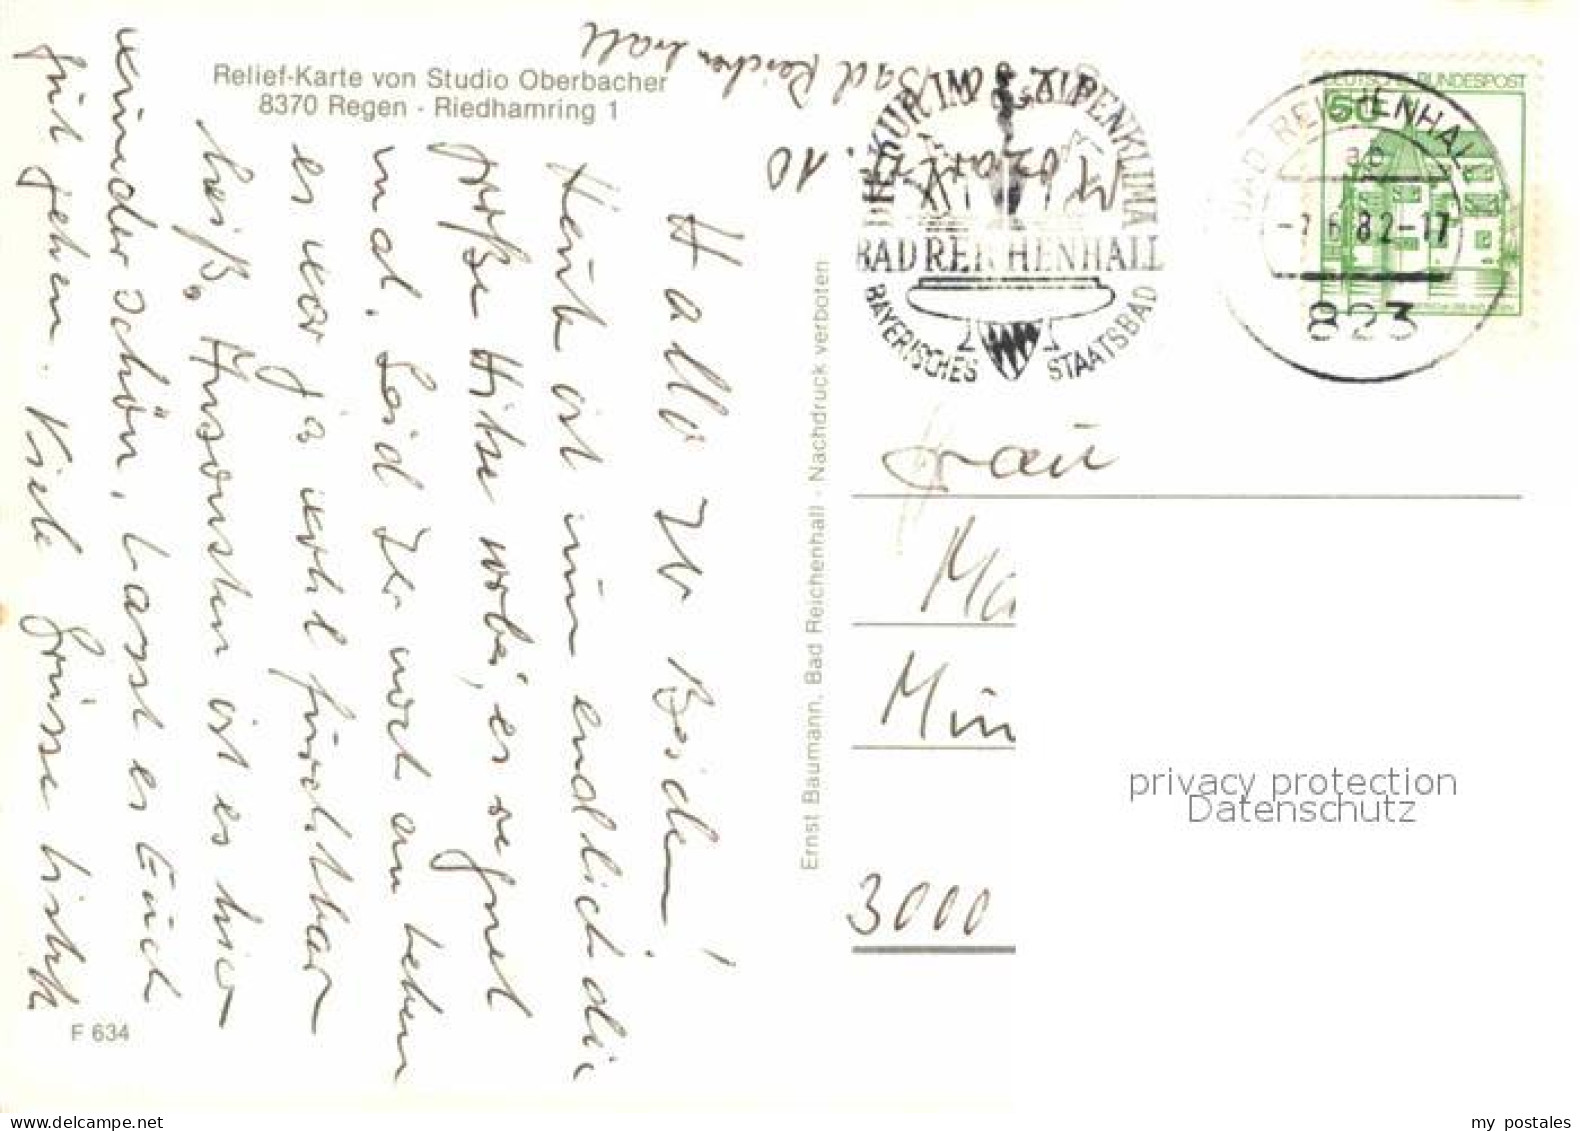 Relief-Karte von Studio Oberbacher
8370 Regen - Riedhamring 1
Bad Reichenhall
Mozartstr. 10
Hallo Ihr Beiden!
Heute ist nun endlich die
große Hitze vorbei, es regnet
mal. Seid Ihr noch am Leben
es war ja wohl furchtbar
heiß. Ansonsten ist es hier
wunderschön, lasst es Euch
gut gehen. Viele Grüsse
F 634
Ernst Baumann, Bad Reichenhall - Nachdruck verboten
DIE KUR IM ALPENKLIMA
BAD REICHENHALL
BAYERISCHES STAATSBAD
DEUTSCHE BUNDESPOST
50
BAD REICHENHALL
ab
-7.6.82-17
823
Frau
3000
privacy protection
Datenschutz
my postales